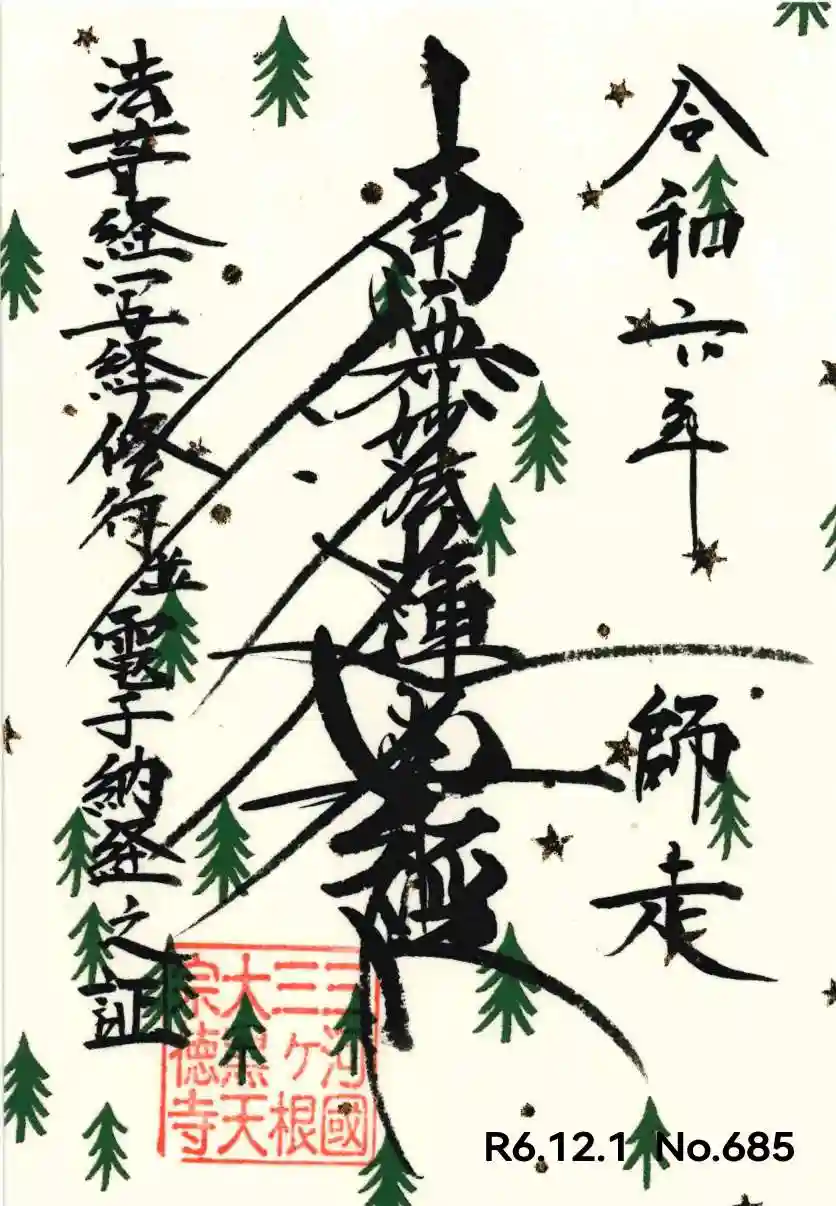 令和六年
師走
南無妙法蓮華経
法華経写経修行並電子納経之証
三河國
三ヶ根
大黒天
宗徳寺
R6.12.1 No.685